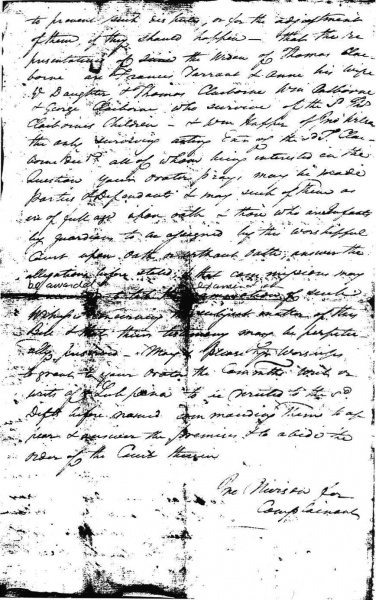 to prevent such disputes, or for the adjustment
of them if they should happen — that the re
presentatives of said the Widow of Thomas Clai
borne are Francis Tarrant & Anne his wife
Daughter of Thomas Claiborne Wm Claiborne
& George Claiborne who survive of the Sd Thos
Claibornes Children — & Wm Harper of his Will
the only surviving acting of the Sd Ts Clai
borne Decd all of whom being interested in the
Question your orator prays may be made
parties Defendants & may such of them as
are of full age upon oath & those who are Infants
by guardian to be assigned by the worshipful
Court upon oath or without oath, answer the
allegations before stated, that commissions may
be awarded examination of such
Witnesses subject matter of this
Bill & that their testimony may be perpetu
ally preserved. May it please Yr Worships
to grant to your Orator the Commwths Writ or
writs of Subpoena to be directed to the sd
Defts before named commanding them to ap
pear & answer the premises & to abide the
order of the Court therein
for
Complainant